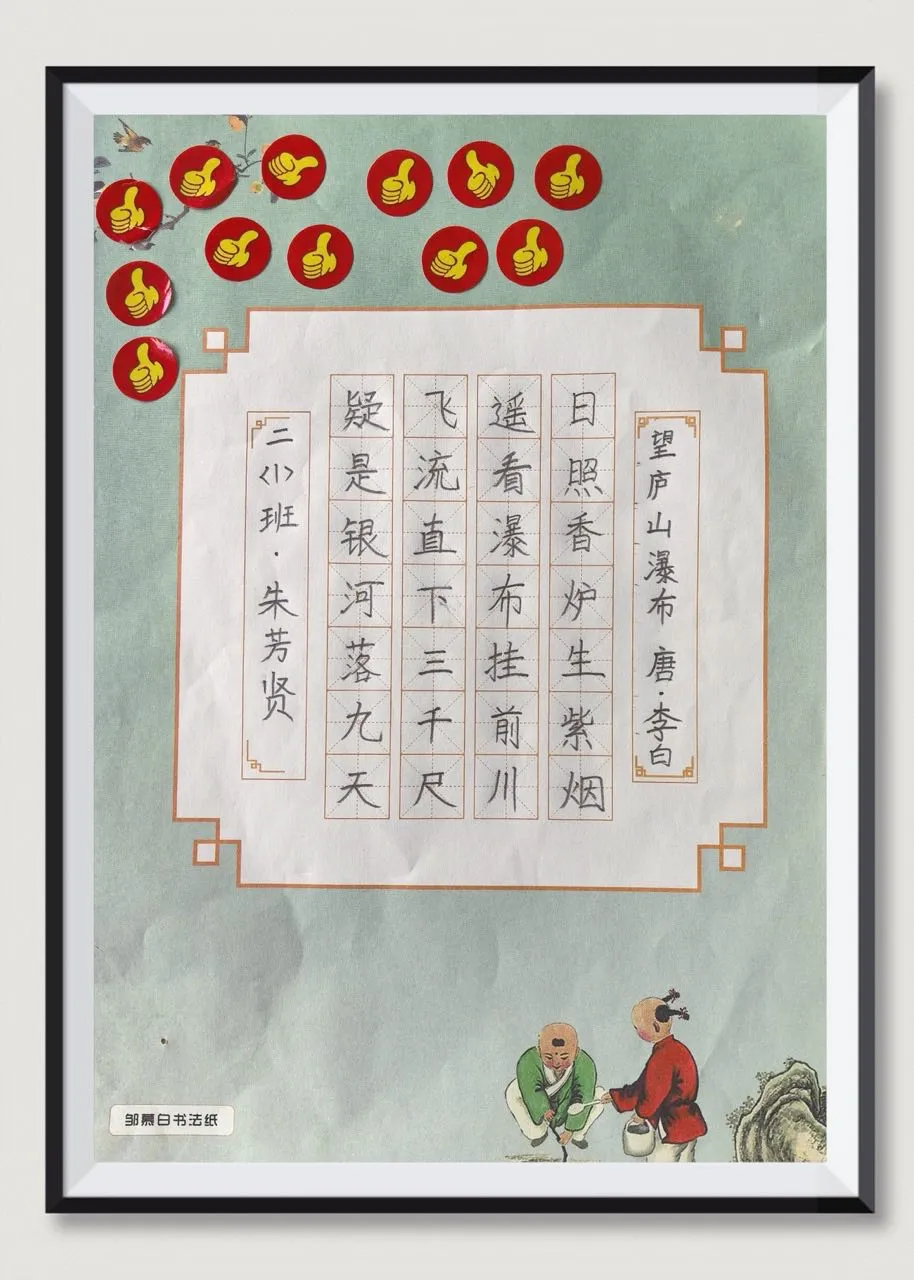 望庐山瀑布 唐·李白
日照香炉生紫烟
遥看瀑布挂前川
飞流直下三千尺
疑是银河落九天
二〈1〉班·朱芳贤
邹慕白书法纸